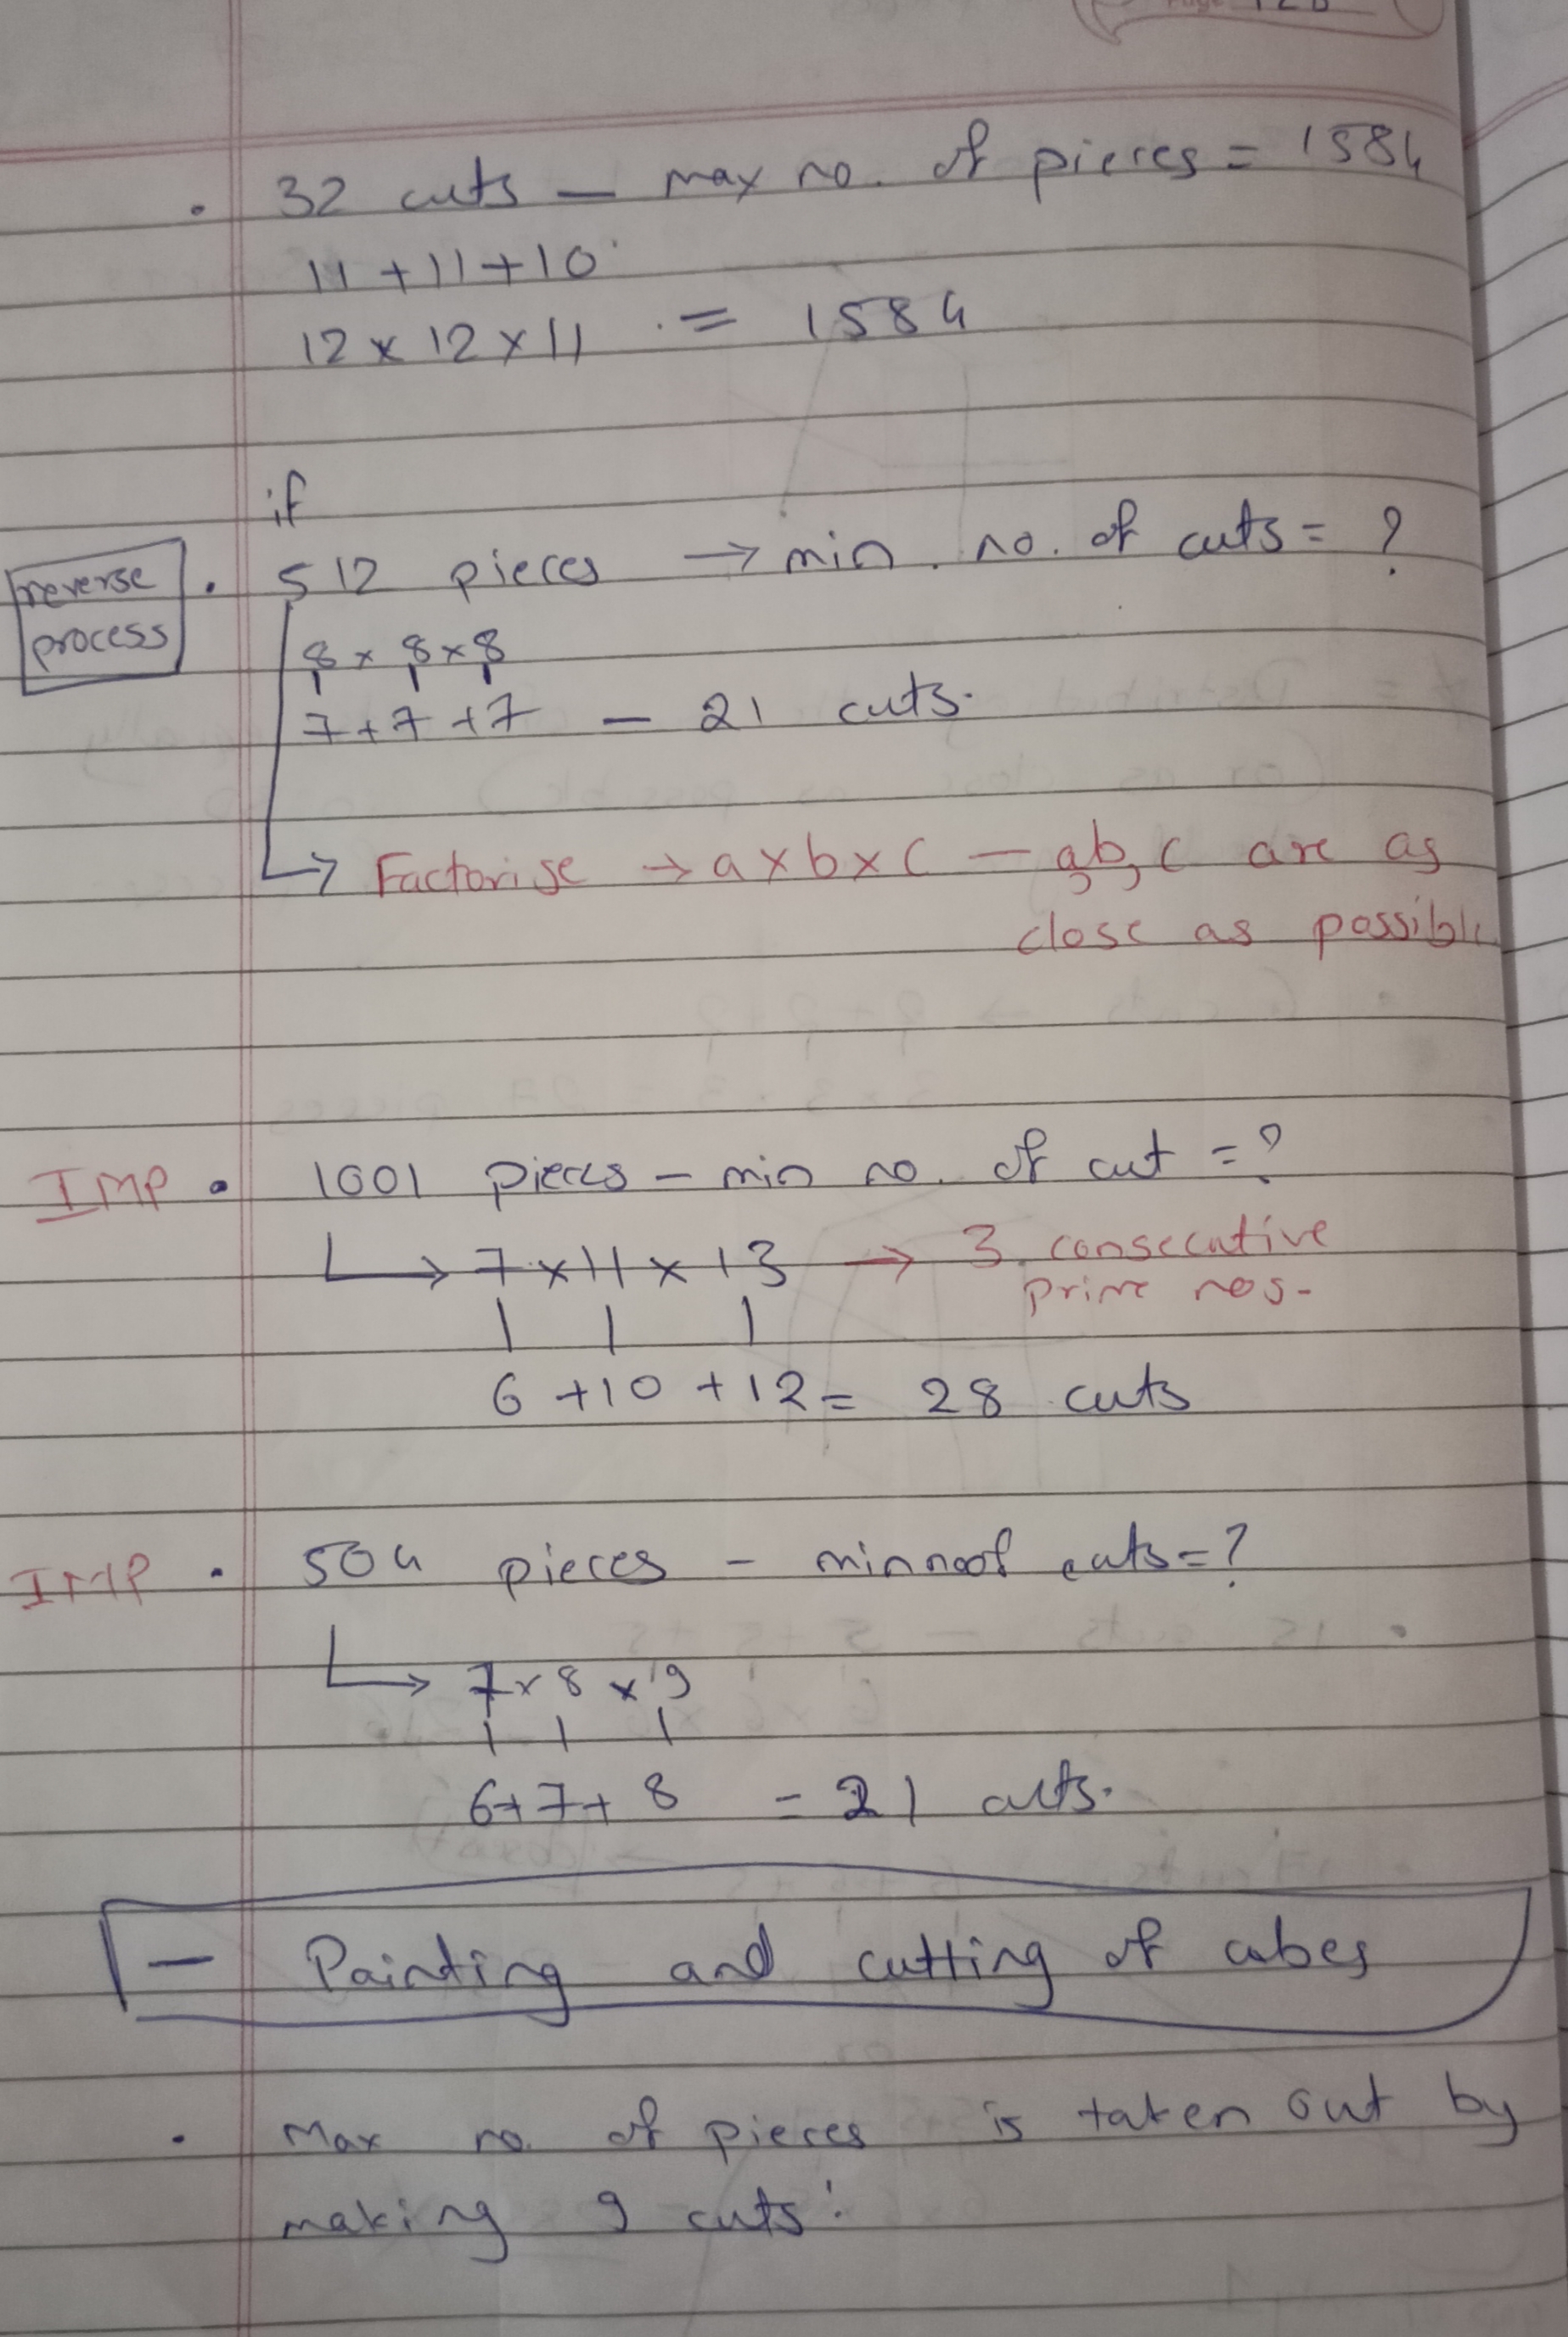 . 32 cuts — max no. of pieces = 1584
11 + 11 + 10
12 x 12 x 11 = 1584
if
reverse process . 512 pieces → min. no. of cuts = ?
8 x 8 x 8
7 + 7 + 7 — 21 cuts.
↳ Factorise → a x b x c — a, b, c are as
close as possible
IMP . 1001 pieces — min no. of cut = ?
↳ 7 x 11 x 13 → 3 consecutive
prime nos.
6 + 10 + 12 = 28 cuts
IMP . 504 pieces — min no of cuts = ?
↳ 7 x 8 x 9
6 + 7 + 8 = 21 cuts.
— Painting and cutting of cubes
. Max no. of pieces is taken out by
making 9 cuts :